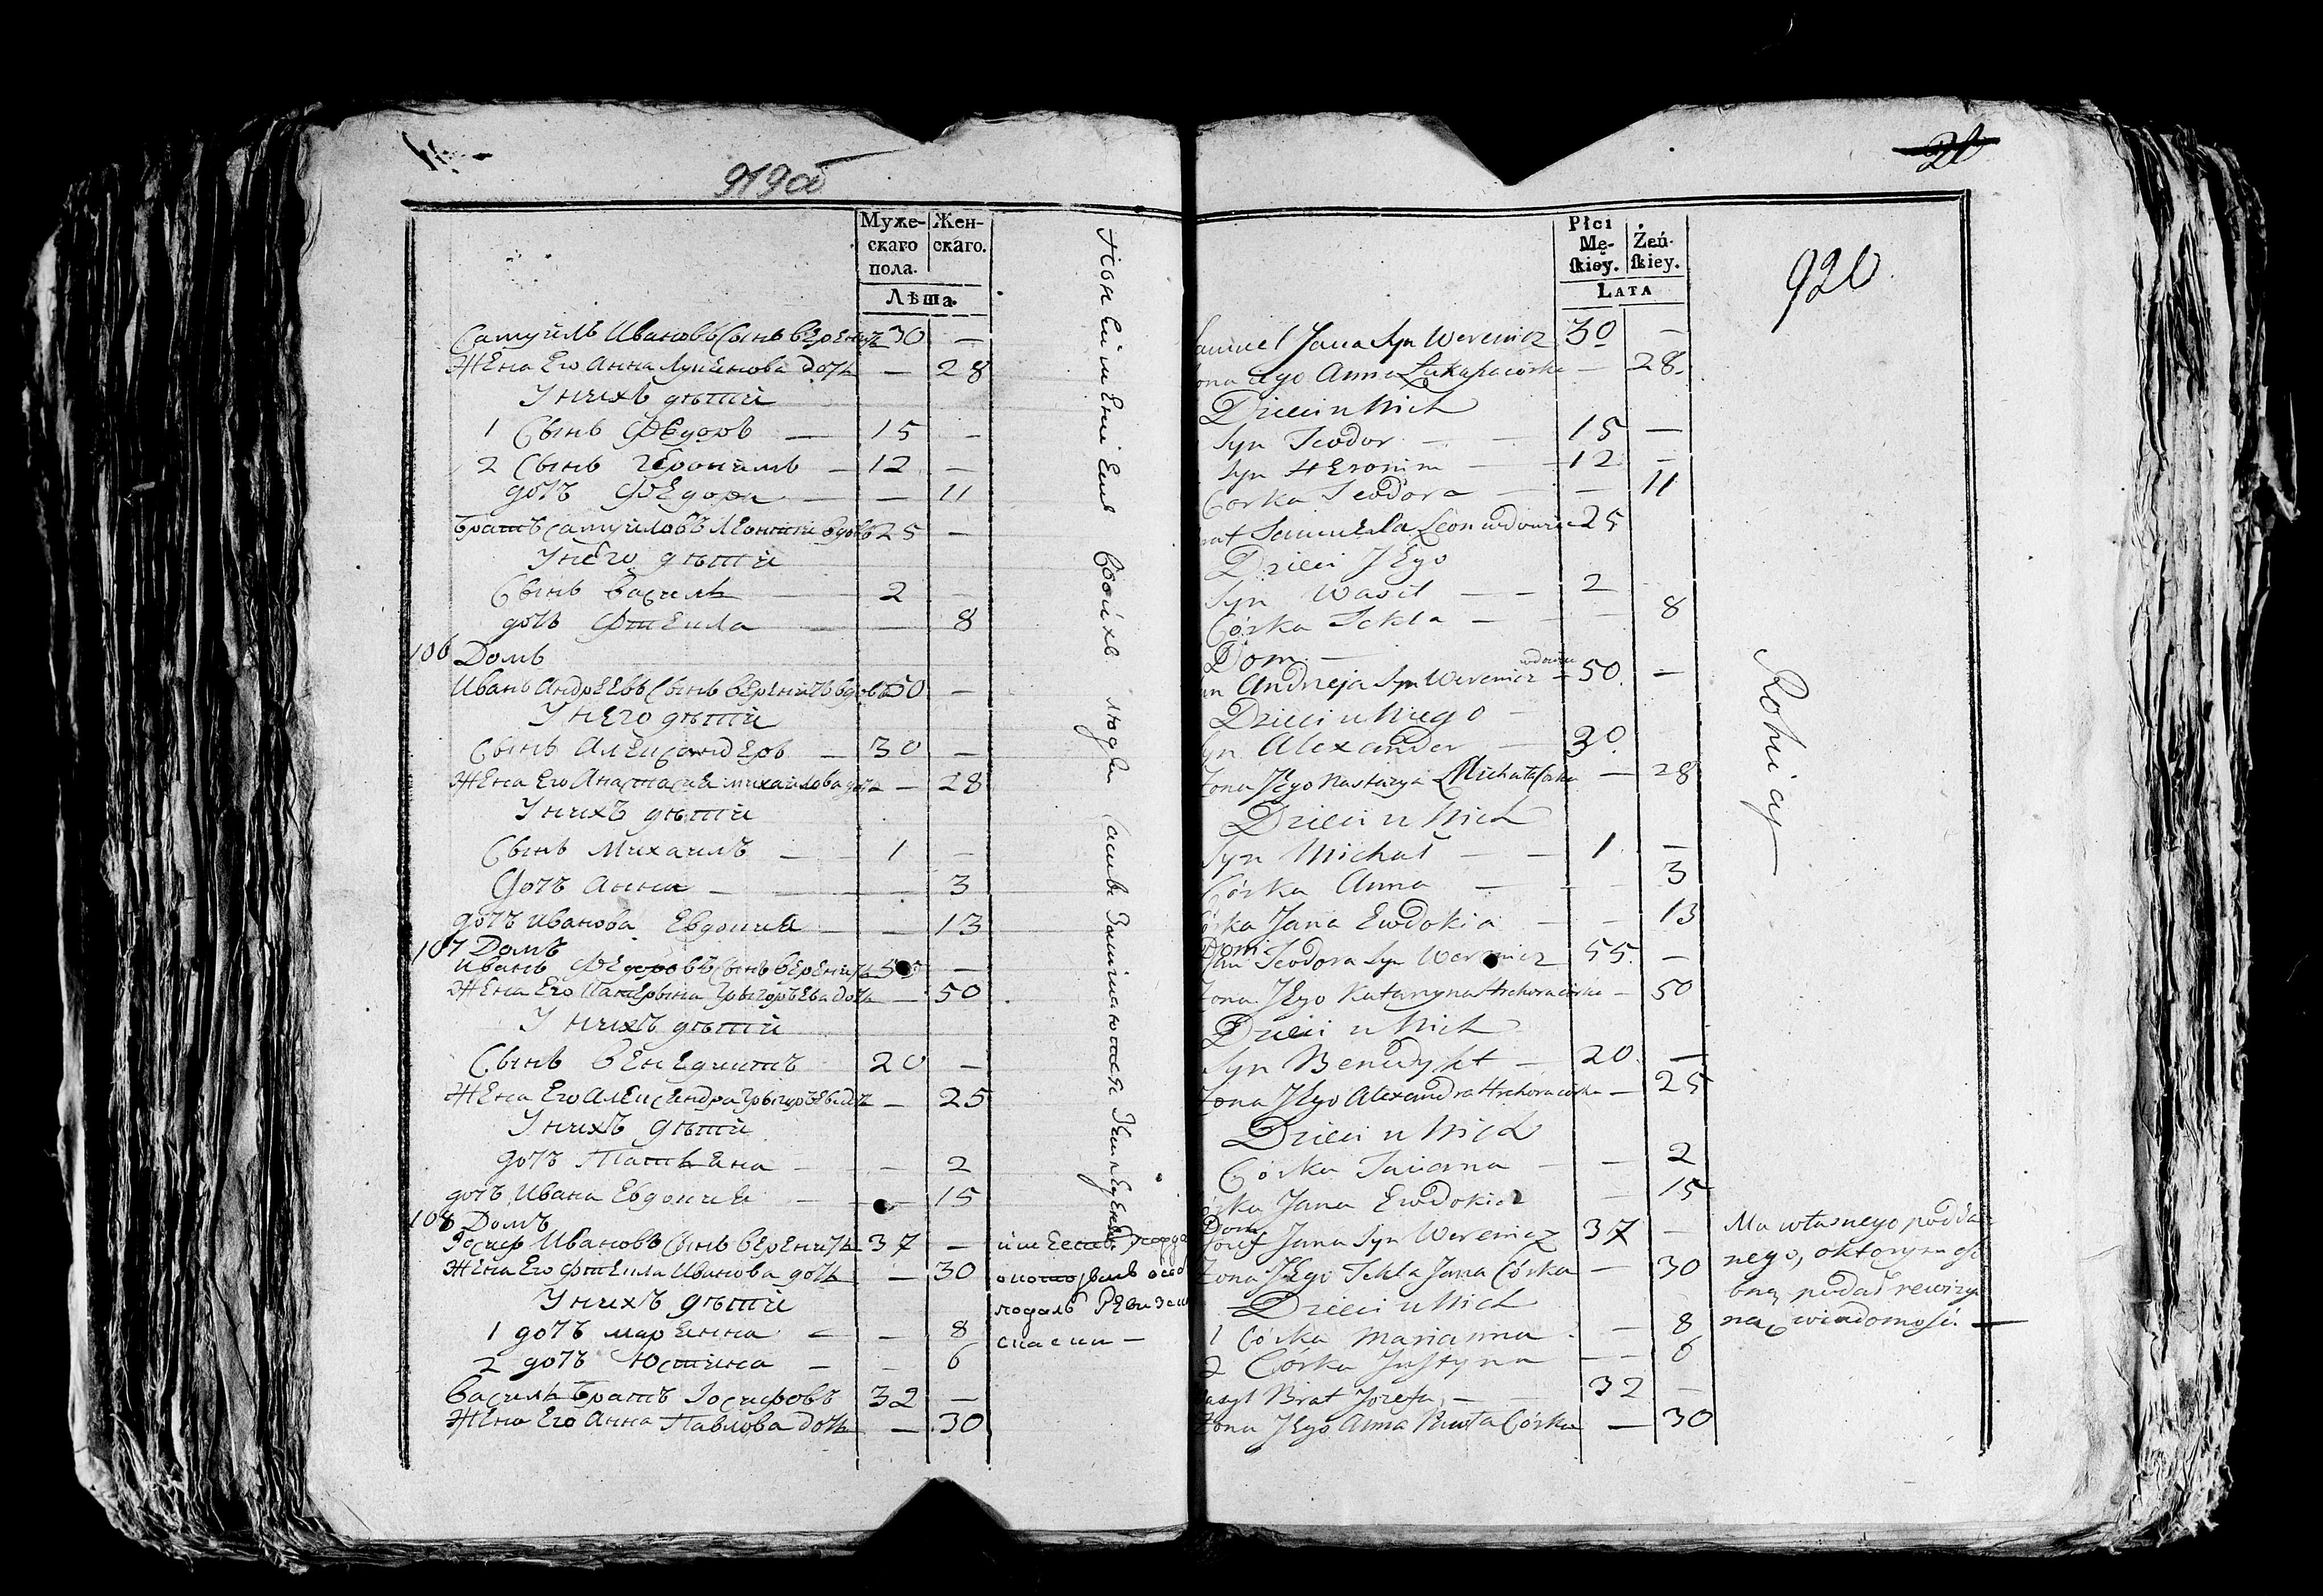 919об
Муже-
скаго
пола.
Жен-
скаго.
Лѣта.
Самуилъ Ивановъ Сынъ Вереничъ 30 —
Жена Его Анна Лукинова дочь — 28
У нихъ дѣтей
1 Сынъ Федоръ — 15 —
2 Сынъ Геронимъ — 12 —
дочь Федора — — 11
Братъ Самуиловъ Леонтій вдовъ 25 —
У него дѣтей
Сынъ Василь — 2
дочь Фтекла — — 8
106 Домъ
Иванъ Андреевъ Сынъ Вереничъ вдовъ 50 —
У него дѣтей
Сынъ Александеръ — 30 —
Жена Его Анастасия Михайлова дочь — 28
У нихъ дѣтей
Сынъ Михаилъ — 1 —
дочь Анна — — 3
дочь Иванова Евдокиа — — 13
107 Домъ
Иванъ Федоровъ Сынъ Вереничь 55 —
Жена Его Катерына Грыгорьева дочь — 50
У нихъ дѣтей
Сынъ Венедиктъ 20 —
Жена Его Александра Грыгорьева дочь — 25
У нихъ дѣтей
дочь Татьяна — — 2
дочь Ивана Евдокия — — 15
108 Домъ
Іосиф Ивановъ Сынъ Вереничь 37 —
Жена Его Фтекла Иванова дочь — 30
У нихъ дѣтей
1 дочь Марянна — — 8
2 дочь Юстина — — 6
Василь Братъ Іосифовъ 32 —
Жена Его Анна Павлова дочь — 30
своихъ людей
подалъ
20
920
Płci
Mę-
ſkiey.
Żeń-
ſkiey.
LATA
Samuel Jana Syn Werenicz 30 —
Żona Jego Anna Łukasza córka — 28
Dzieci u Nich
Syn Teodor — 15 —
Syn Heronim — 12 —
Córka Teodora — — 11
Brat Samuela Leon wdowiec 25
Dzieci Jego
Syn Wasil — — 2
Córka Tekla — — 8
Dom —
Jan Andrzeja Syn Werenicz wdowiec — 50 —
Dzieci u Niego —
Syn Alexander — 30
Żona Jego Nastazya Michała Córka — 28
Dzieci u Nich
Syn Michał — — 1 —
Córka Anna — — 3
Córka Jana Ewdokia — — 13
Dom
Jan Teodora Syn Werenicz 55 —
Żona Jego Katarzyna Hrehora córka — 50
Dzieci u Nich
Syn Benedykt — 20 —
Żona Jego Alexandra Hrehora córka — 25
Dzieci u Nich
Córka Taciana — — 2
Córka Jana Ewdokia — 15
Dom
Józef Jana Syn Werenicz 37 —
Żona Jego Tekla Jana Córka — 30
Dzieci u Nich
1 Córka Marianna — 8
2 Córka Justyna — — 6
Wasyl Brat Jozefa — 32 —
Żona Jego Anna Pawła Córka — 30
Ma własnego podda-
nego, o ktorym oso-
bną podał rewizy-
ną wiadomość. —